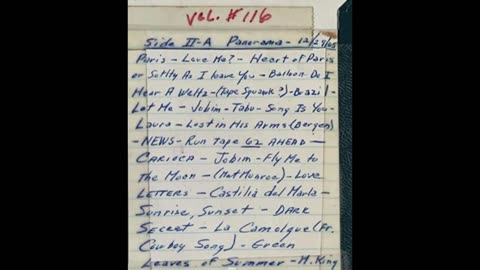 VOL. #116
Side II-A Panorama - 12/27/65
Paris - Love Me? - Heart of Paris
or Softly As I leave You - Balloon - Do I
Hear A Waltz - (Tape Squawk?) - Brazil -
Let Me - Jobim - Tabu - Song Is You -
Laura - Lost in His Arms - (Bergen)
- NEWS - Run Tape 62 AHEAD -
CARIOCA - Jobim - Fly Me to
The Moon - (Matt Monroe) - Love
LETTERS - Castilia del Marla -
Sunrise, Sunset - DARK
Secret - La Camolgue (Fr.
Cowboy Song) - Green
Leaves of Summer - M. King